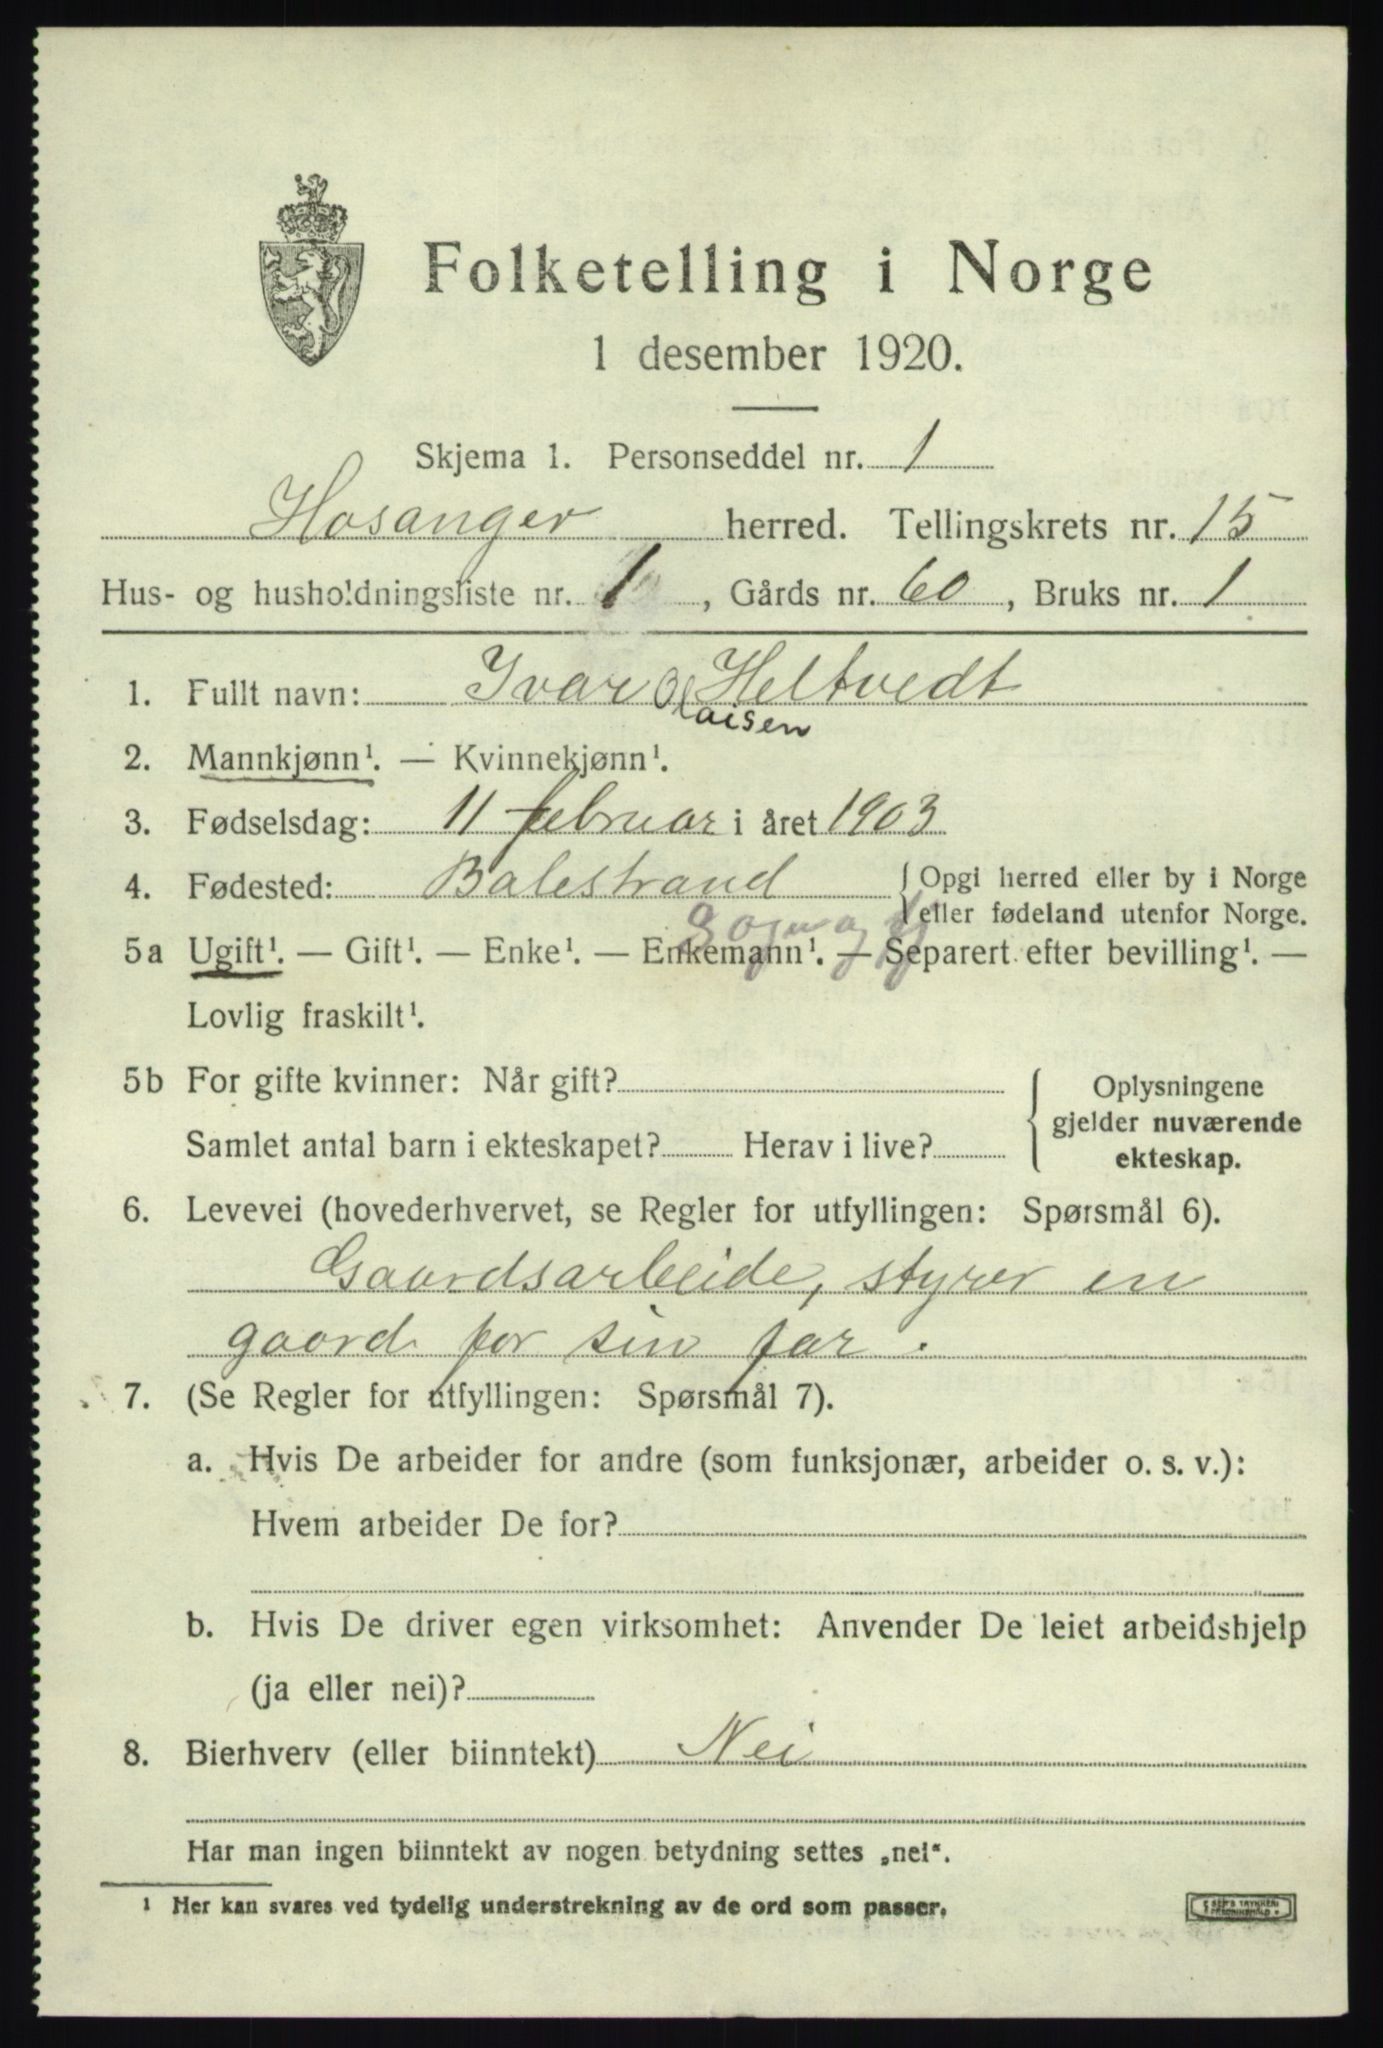 Folketelling i Norge
1 desember 1920.
Skjema 1. Personseddel nr. 1
Hosanger herred. Tellingskrets nr. 15
Hus- og husholdningsliste nr. 1, Gårds nr. 60, Bruks nr. 1
1. Fullt navn: Ivar Olaisen Heltvedt
2. Mannkjønn¹. — Kvinnekjønn¹.
3. Fødselsdag: 11 februar i året 1903
4. Fødested: Balestrand { Opgi herred eller by i Norge
eller fødeland utenfor Norge.
Sogn og Fj
5a Ugift¹. — Gift¹. — Enke¹. — Enkemann¹. — Separert efter bevilling¹. —
Lovlig fraskilt¹.
5b For gifte kvinner: Når gift? { Oplysningene
gjelder nuværende
Samlet antal barn i ekteskapet? Herav i live?
ekteskap.
6. Levevei (hovederhvervet, se Regler for utfyllingen: Spørsmål 6).
Gaardsarbeide, styrer en
gaard for sin far.
7. (Se Regler for utfyllingen: Spørsmål 7).
a. Hvis De arbeider for andre (som funksjonær, arbeider o. s. v.):
Hvem arbeider De for?
b. Hvis De driver egen virksomhet: Anvender De leiet arbeidshjelp
(ja eller nei)?
8. Bierhverv (eller biinntekt) Nei
Har man ingen biinntekt av nogen betydning settes „nei“.
1 Her kan svares ved tydelig understrekning av de ord som passer.